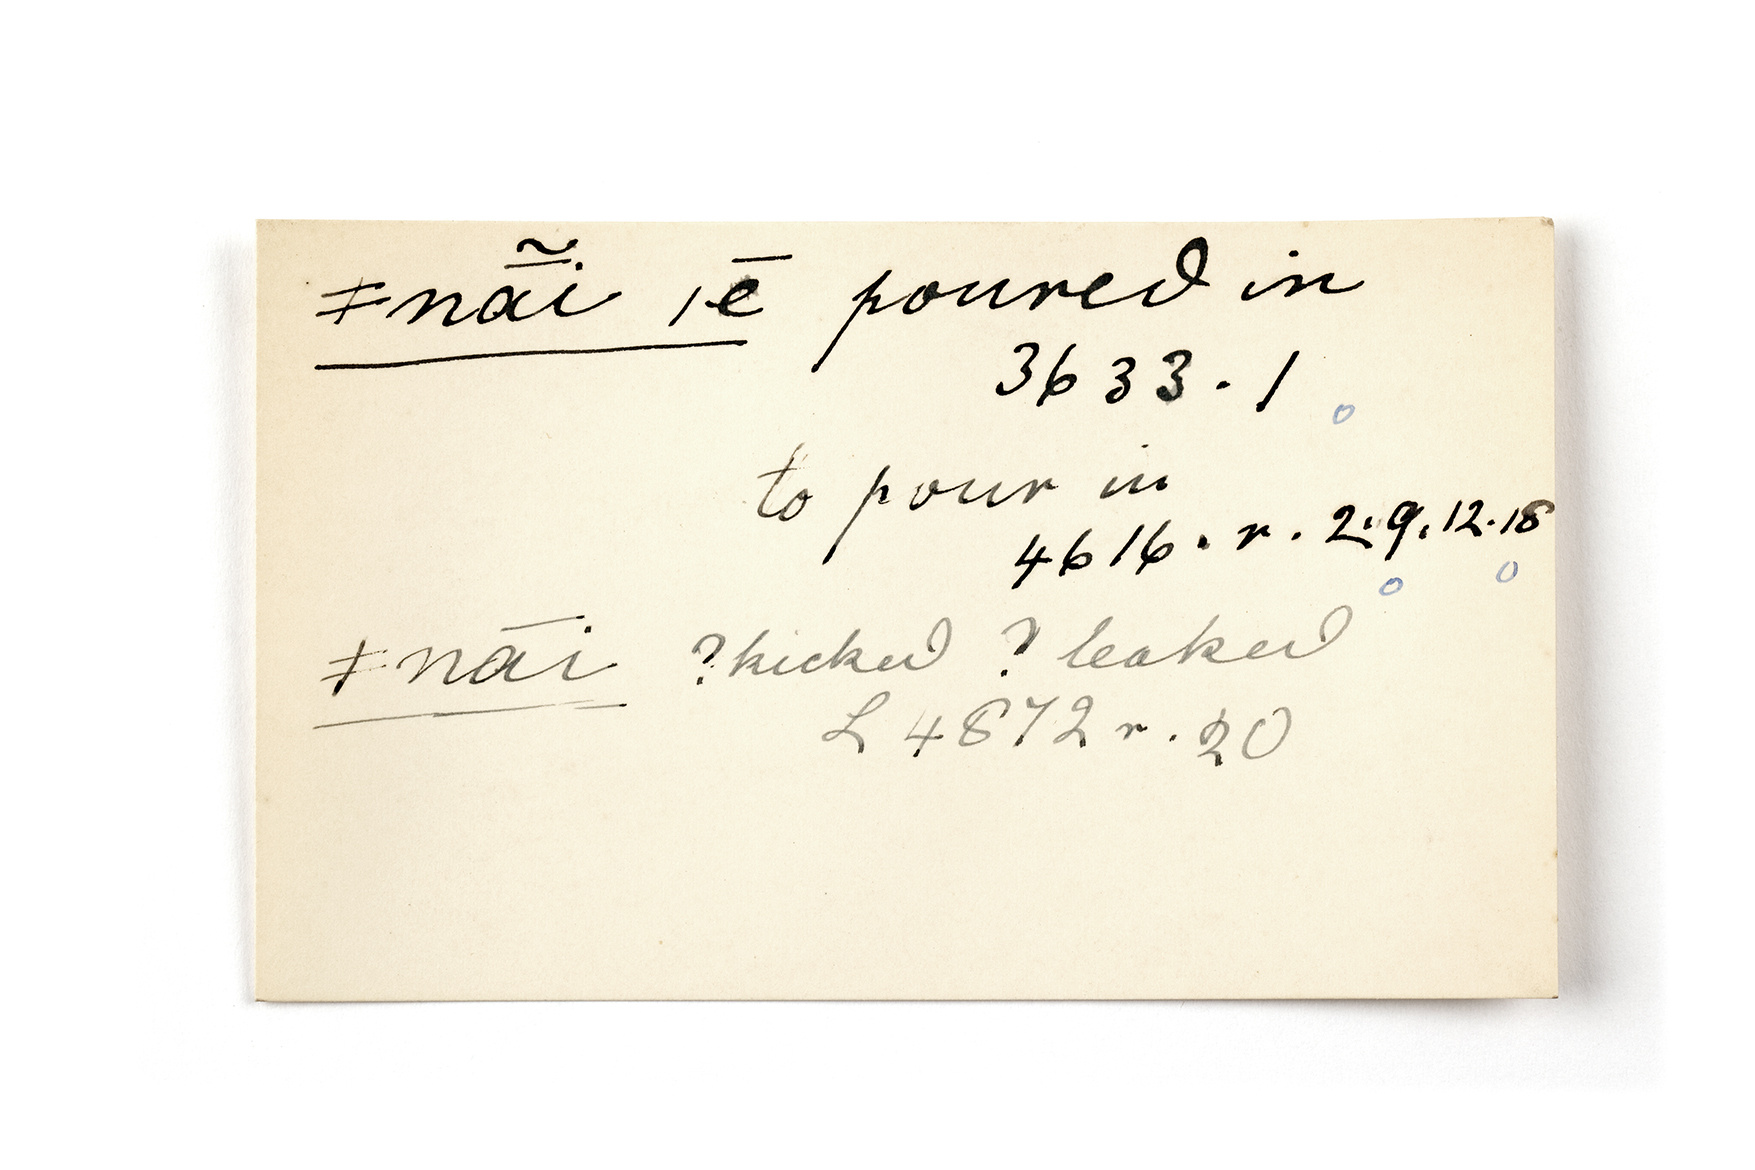 ǂnā̃i |ē poured in
3633.1
to pour in
4616.r.2.9.12.18
ǂnāi ?kicked ?leaked
L 4872 r.20